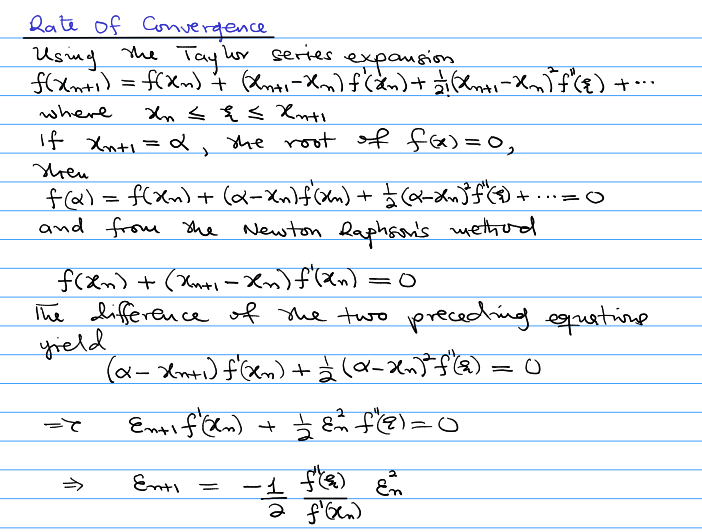 Rate Of Convergence
Using the Taylor series expansion
f(xₙ₊₁) = f(xₙ) + (xₙ₊₁-xₙ) f'(xₙ) + 1/2! (xₙ₊₁-xₙ)² f''(ξ) + ⋯
where xₙ ≤ ξ ≤ xₙ₊₁
If xₙ₊₁ = α, the root of f(x) = 0,
then
f(α) = f(xₙ) + (α-xₙ) f'(xₙ) + 1/2 (α-xₙ)² f''(ξ) + ⋯ = 0
and from the Newton Raphson's method
f(xₙ) + (xₙ₊₁ - xₙ) f'(xₙ) = 0
The difference of the two preceding equations
yield
(α - xₙ₊₁) f'(xₙ) + 1/2 (α-xₙ)² f''(ξ) = 0
⇒ εₙ₊₁ f'(xₙ) + 1/2 εₙ² f''(ξ) = 0
⇒ εₙ₊₁ = -1/2 f''(ξ)/f'(xₙ) εₙ²